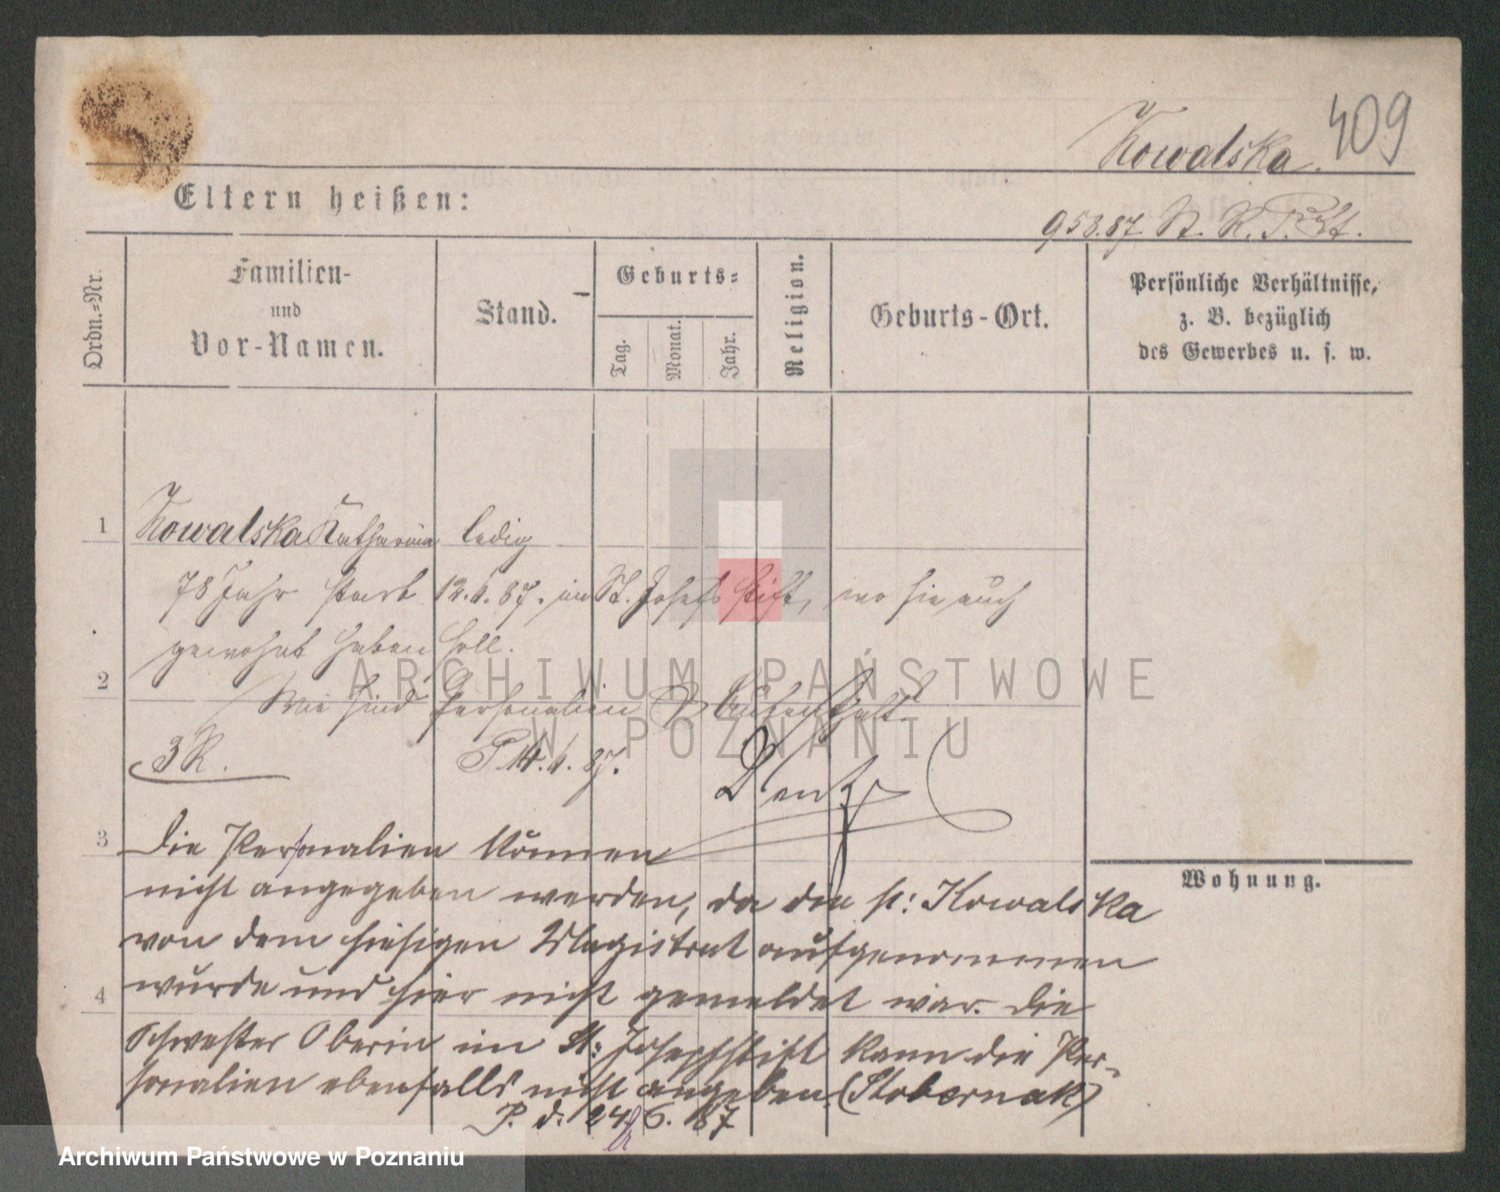 Kowalska. 409
Eltern heißen:
953.87. St. R.
Ordn.=Nr.
Familien-
und
Vor-Namen.
Stand.
Geburts=
Tag.
Monat.
Jahr.
Religion.
Geburts-Ort.
Persönliche Verhältnisse,
z. B. bezüglich
des Gewerbes u. s. w.
1 Kowalska Katharina ledig
78 Jahr starb 12.6.87. im St. Josefs stift, wo sie auch
gewohnt haben soll.
2
Wie sind Personalien Aufenthalt
3R. P. 14.6.87.
3 Die Personalien können
nicht angegeben werden, da die p: Kowalska
von dem hiesigen Magistrat aufgenommen
4 wurde und hier nicht gemeldet war. Die
Schwester Oberin im St: Josephstift kann die Per-
sonalien ebenfalls nicht angeben (Stobernak)
P. d. 24/6. 87
Wohnung.
ARCHIWUM PAŃSTWOWE
W POZNANIU
Archiwum Państwowe w Poznaniu